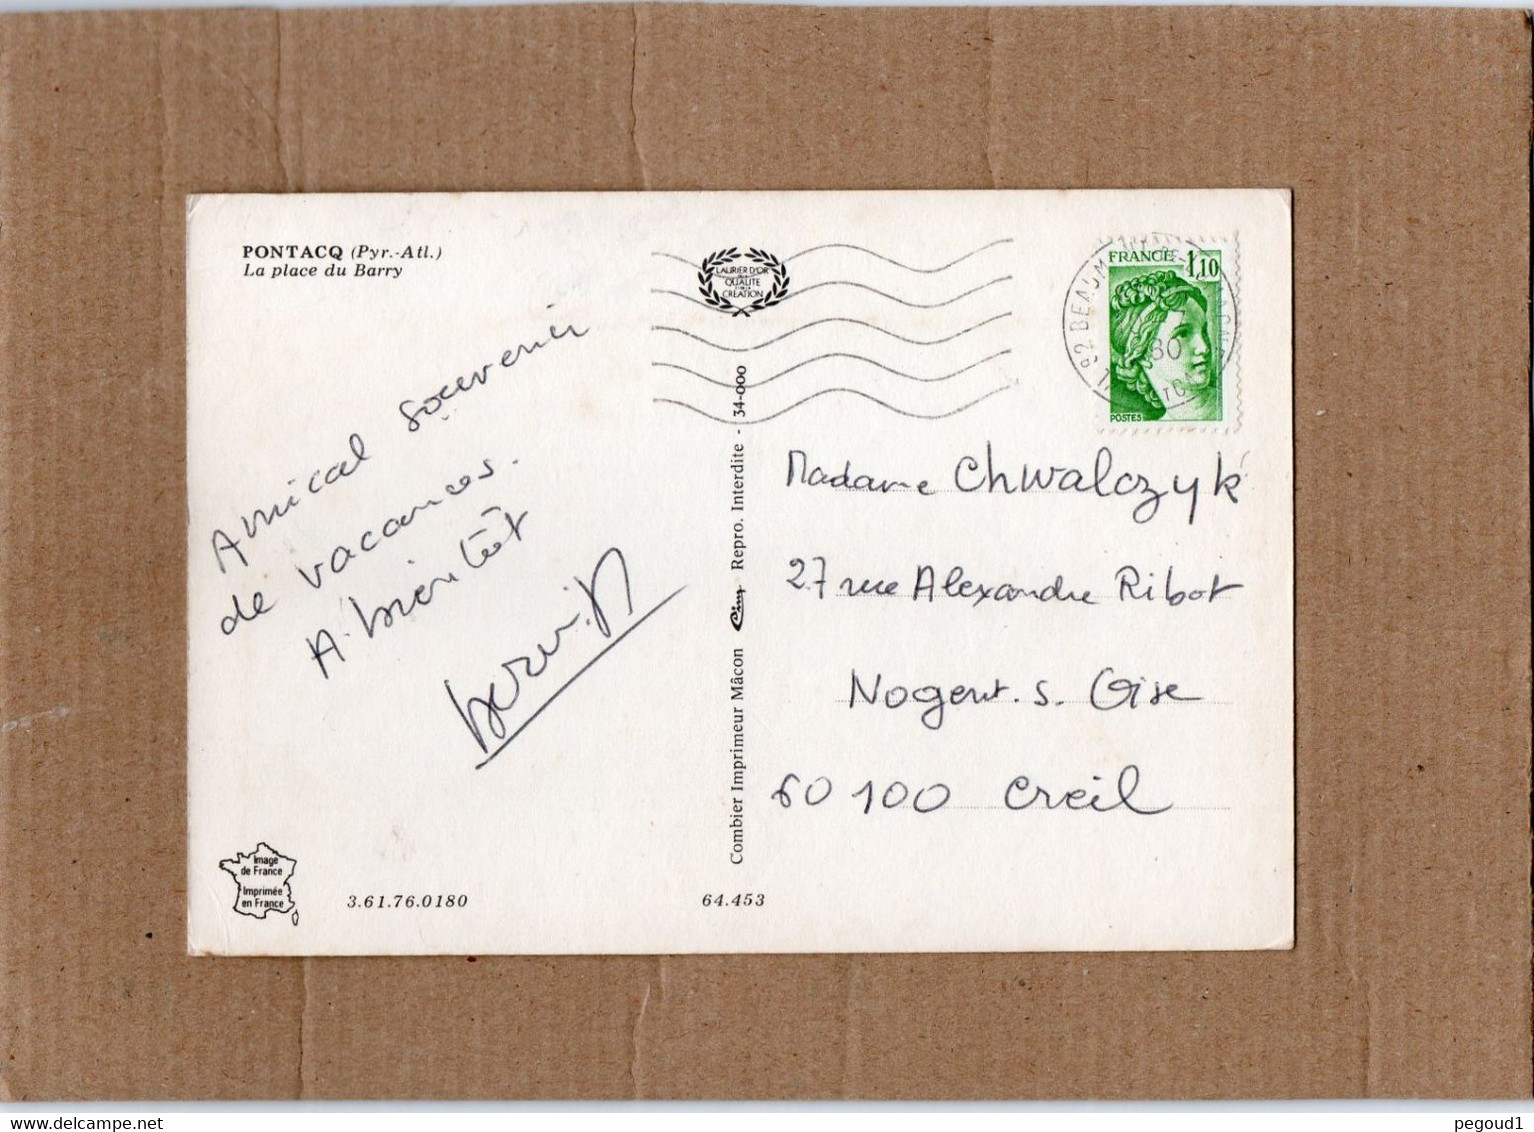 PONTACQ (Pyr.-Atl.)
La place du Barry
Amical souvenir
de vacances.
A bientôt
Image
de France
Imprimée
en France
3.61.76.0180
64.453
Combier Imprimeur Mâcon Cim Repro. Interdite - 34-000
LAURIER D'OR
QUALITE
CREATION
FRANCE 1,10
POSTES
82 BEAUM
80
Madame Chwalczyk
27 rue Alexandre Ribot
Nogent. s. Oise
60100 Creil
pegoud1